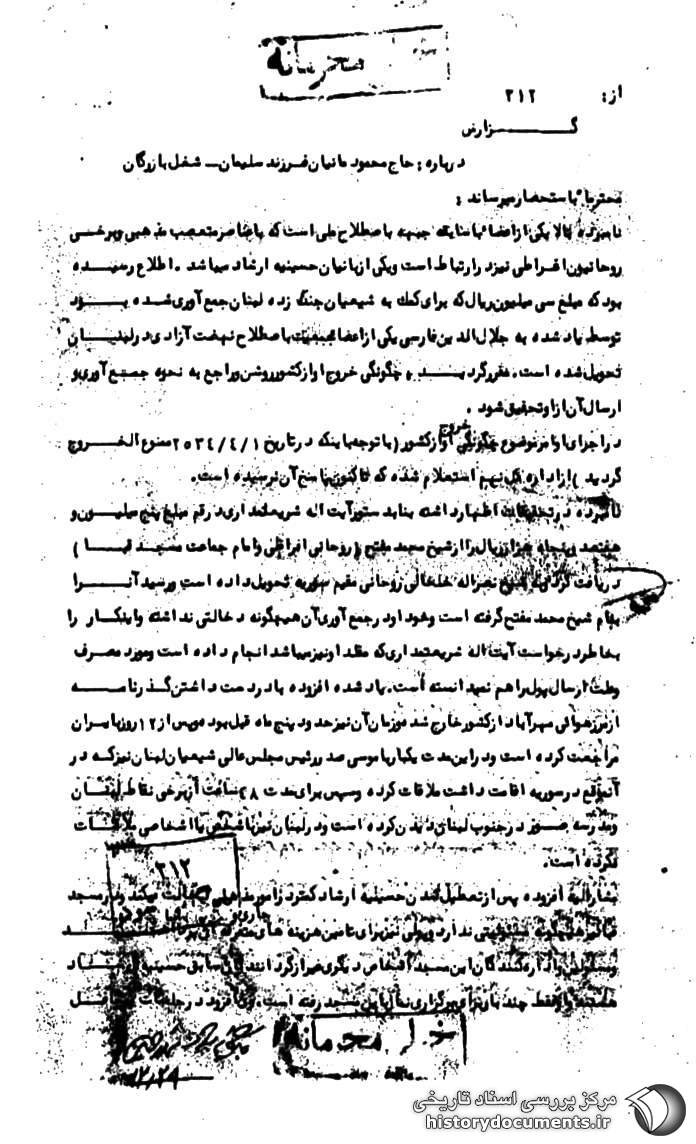 محرمانه
از: ۳۱۲
گـــزارش
درباره : حاج محمود مانیان فرزند سلیمان ــ شغل بازرگان
محترما باستحضار میرساند :
نامبرده بالا یکی از اعضاء با سابقه جبهه باصطلاح ملی است که با عناصر متعصب مذهبی و برخی
روحانیون افراطی نیز در ارتباط است و یکی از بانیان حسینیه ارشاد میباشد . اطلاع رسیده
بود که مبلغ سی میلیون ریال که برای کمک به شیعیان جنگ زده لبنان جمع آوری شده بود
توسط یاد شده به جلال الدین فارسی یکی از اعضاء جمعیت باصطلاح نهضت آزادی در لبنان
تحویل شده است . مقرر گردید ، چگونگی خروج او از کشور روشن و راجع به نحوه جمع آوری و
ارسال آن از او تحقیق شود .
در اجرای اوامر موضوع چگونگی خروج او از کشور ( با توجه باینکه در تاریخ ۲۵۳۴/۴/۱ ممنوع الخروج
گردید ) از اداره کل نهم استعلام شده که تاکنون پاسخ آن نرسیده است .
نامبرده در تحقیقات اظهار داشته بنا بدستور آیت اله شریعتمداری در قم مبلغ پنج میلیون و
هفتصد و پنجاه هزار ریال را از شیخ محمد مفتح ( روحانی افراطی و امام جماعت مسجد قبا )
دریافت کرده و به شیخ نصراله خلخالی روحانی مقیم سوریه تحویل داده است و رسید آنرا
بنام شیخ محمد مفتح گرفته است و خود او در جمع آوری آن هیچگونه دخالتی نداشته و اینکار را
بخاطر درخواست آیت اله شریعتمداری که مقلد او نیز میباشد انجام داده است و مورد مصرف
و علت ارسال پول را هم نمیدانسته است . یاد شده افزوده با در دست داشتن گذرنامه
از مرز هوائی مهرآباد از کشور خارج شد و زمان آن نیز حدود پنج ماه قبل بود و پس از ۱۲ روز بایران
مراجعت کرده است و در این مدت یکبار با موسی صدر رئیس مجلس عالی شیعیان لبنان نیز که در
آنموقع در سوریه اقامت داشت ملاقات کرده و سپس برای مدت ۴۸ ساعت از برخی نقاط لبنان
و مدرسه صور در جنوب لبنان دیدن کرده است و در لبنان نیز با شخص یا اشخاصی ملاقات
نکرده است .
مشارالیه افزوده پس از تعطیل شدن حسینیه ارشاد کمتر در امور مذهبی فعالیت میکند و در مسجد
قبا هم هیچگونه مسئولیتی ندارد ولی نیز برای تامین هزینه های
و مسئولین و اداره کنندگان این مسجد اشخاص دیگری غیر از گردانندگان سابق حسینیه ارشاد
هستند و فقط چند بار برای برگزاری نماز باین مسجد رفته است .
۳۱۲
خیلی محرمانه
۱۲/۲۹
مرکز بررسی اسناد تاریخی
historydocuments.ir